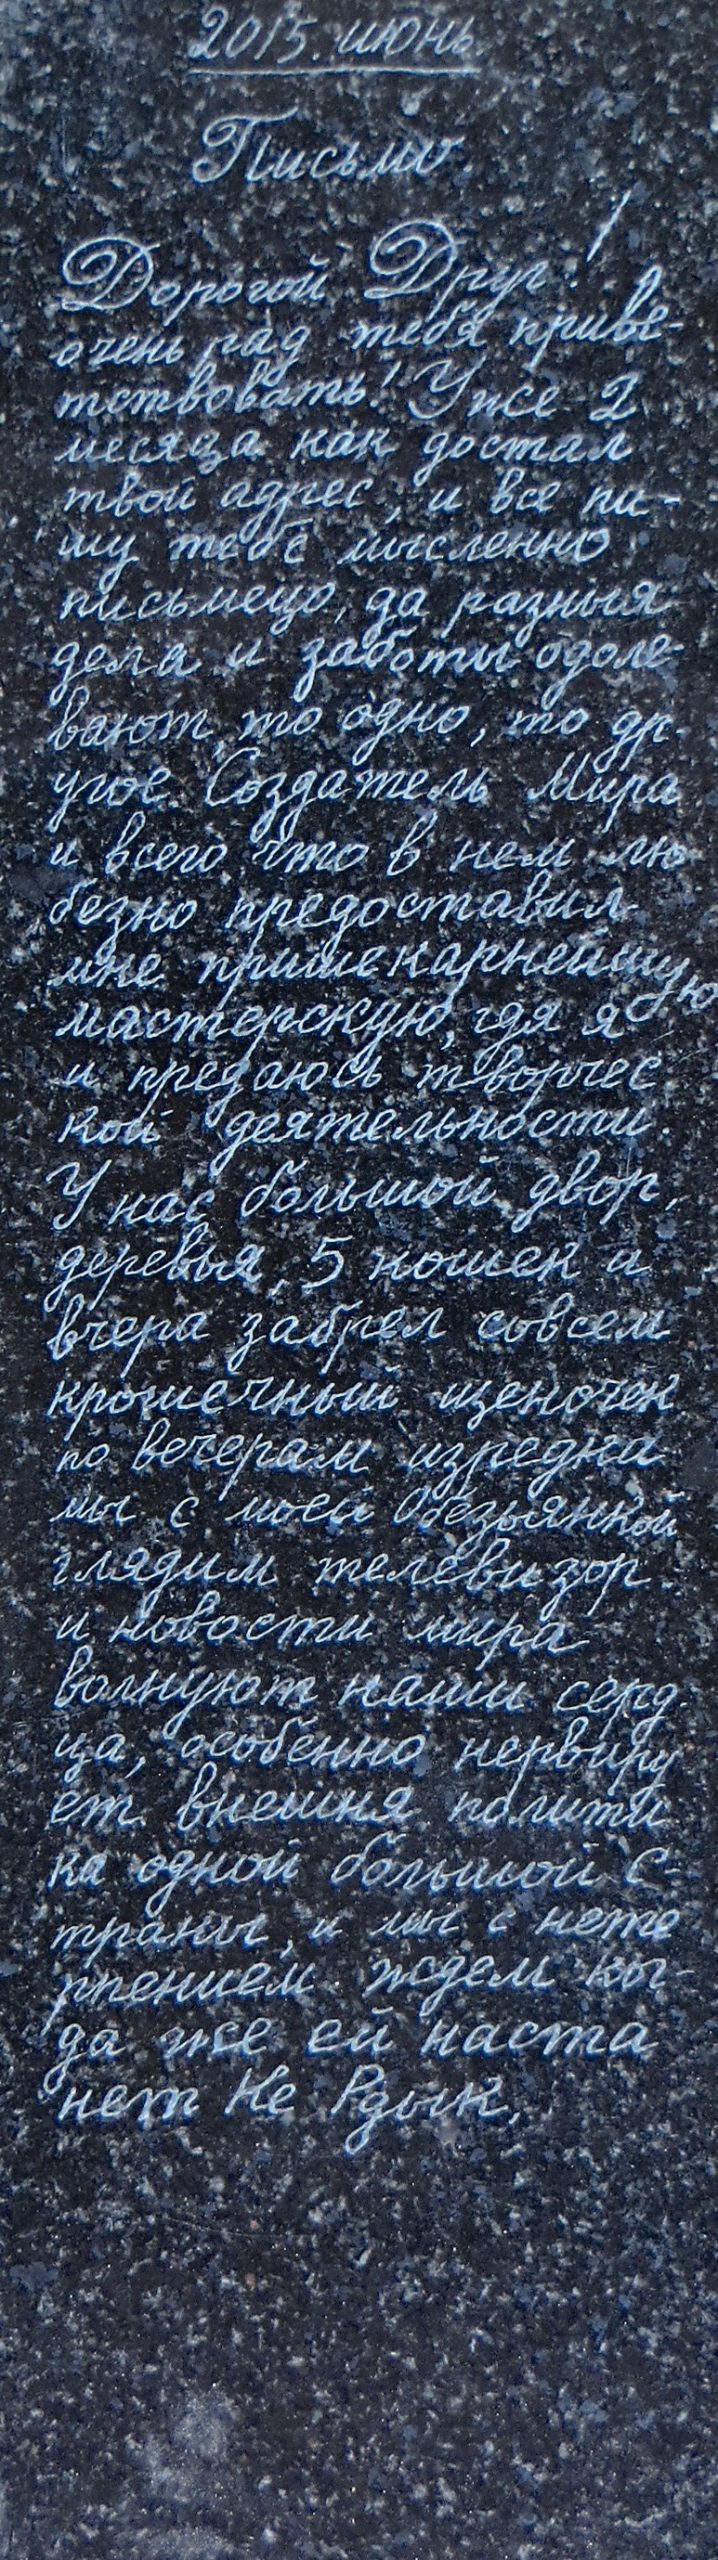 2015. июнь.
Письмо.
Дорогой Друг!
очень рад тебя приве-
тствовать! Уже 2
месяца как достал
твой адрес, и все пи-
шу тебе мысленно
письмецо, да разныя
дела и заботы одоле-
вают, то одно, то др-
угое. Создатель Мира
и всего что в нем лю-
безно предоставил
мне пришекарнейшую
мастерскую, гдя я
и предаюсь творчес
кой деятельности.
У нас большой двор,
деревья, 5 кошек и
вчера забрел совсем
крошечный щеночек
по вечерам изредка
мы с моей Обезьянкой
глядим телевизор.
и новости мира
волнуют наши серд-
ца, особенно нервиру
ет внешня полити
ка одной большой С-
траны, и мы с нете
рпением ждем ко-
да же ей наста
нет Не Рдык.